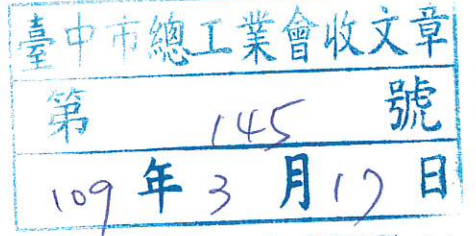 臺中市總工業會收文章
第 145 號
109 年 3 月 17 日